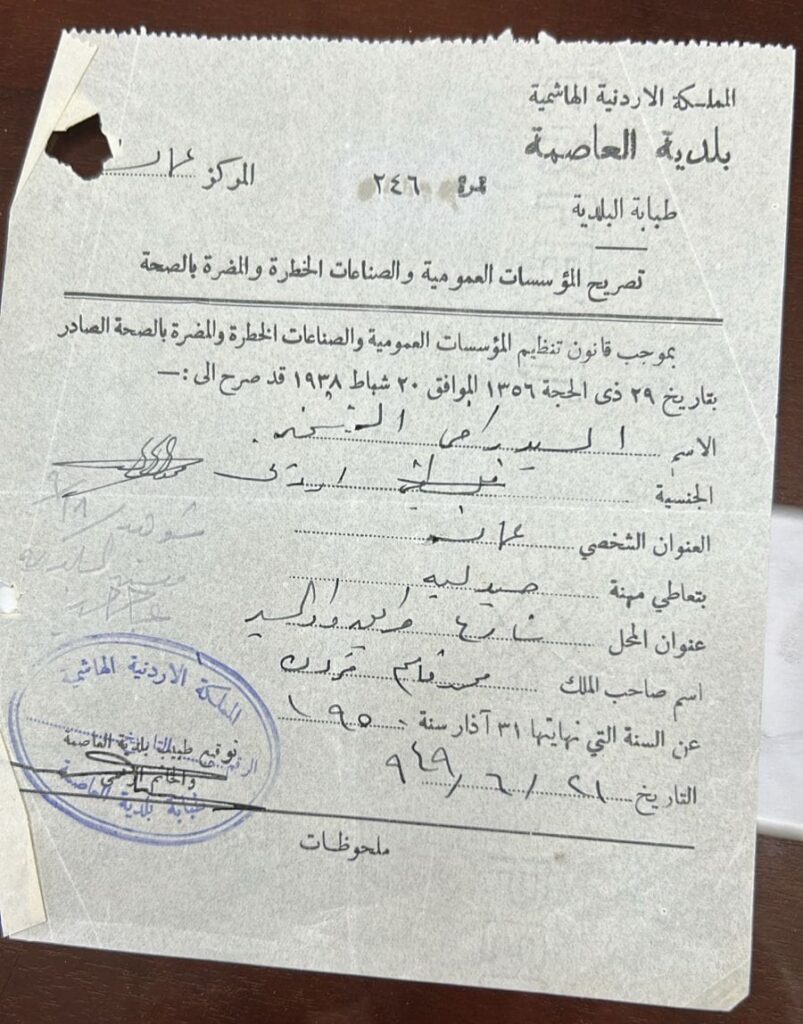 المملكة الاردنية الهاشمية
بلدية العاصمة
طبابة البلدية
نمرة ٢٤٦
المركز عمان
تصريح المؤسسات العمومية والصناعات الخطرة والمضرة بالصحة
بموجب قانون تنظيم المؤسسات العمومية والصناعات الخطرة والمضرة بالصحة الصادر
بتاريخ ٢٩ ذى الحجة ١٣٥٦ الموافق ٢٠ شباط ١٩٣٨ قد صرح الى :—
الاسم السيد
الجنسية اردني
العنوان الشخصي عمان
بتعاطي مهنة صيدليه
عنوان المحل شارع
اسم صاحب الملك محمد قاسم
عن السنة التي نهايتها ٣١ آذار سنة ١٩٥٠
التاريخ ٢١/٦/٩٤٩
المملكة الاردنية الهاشمية
الرقم التاريخ
توقيع طبيب بلدية العاصمة
والخاتم الرسمي
طبابة بلدية العاصمة
ملحوظات